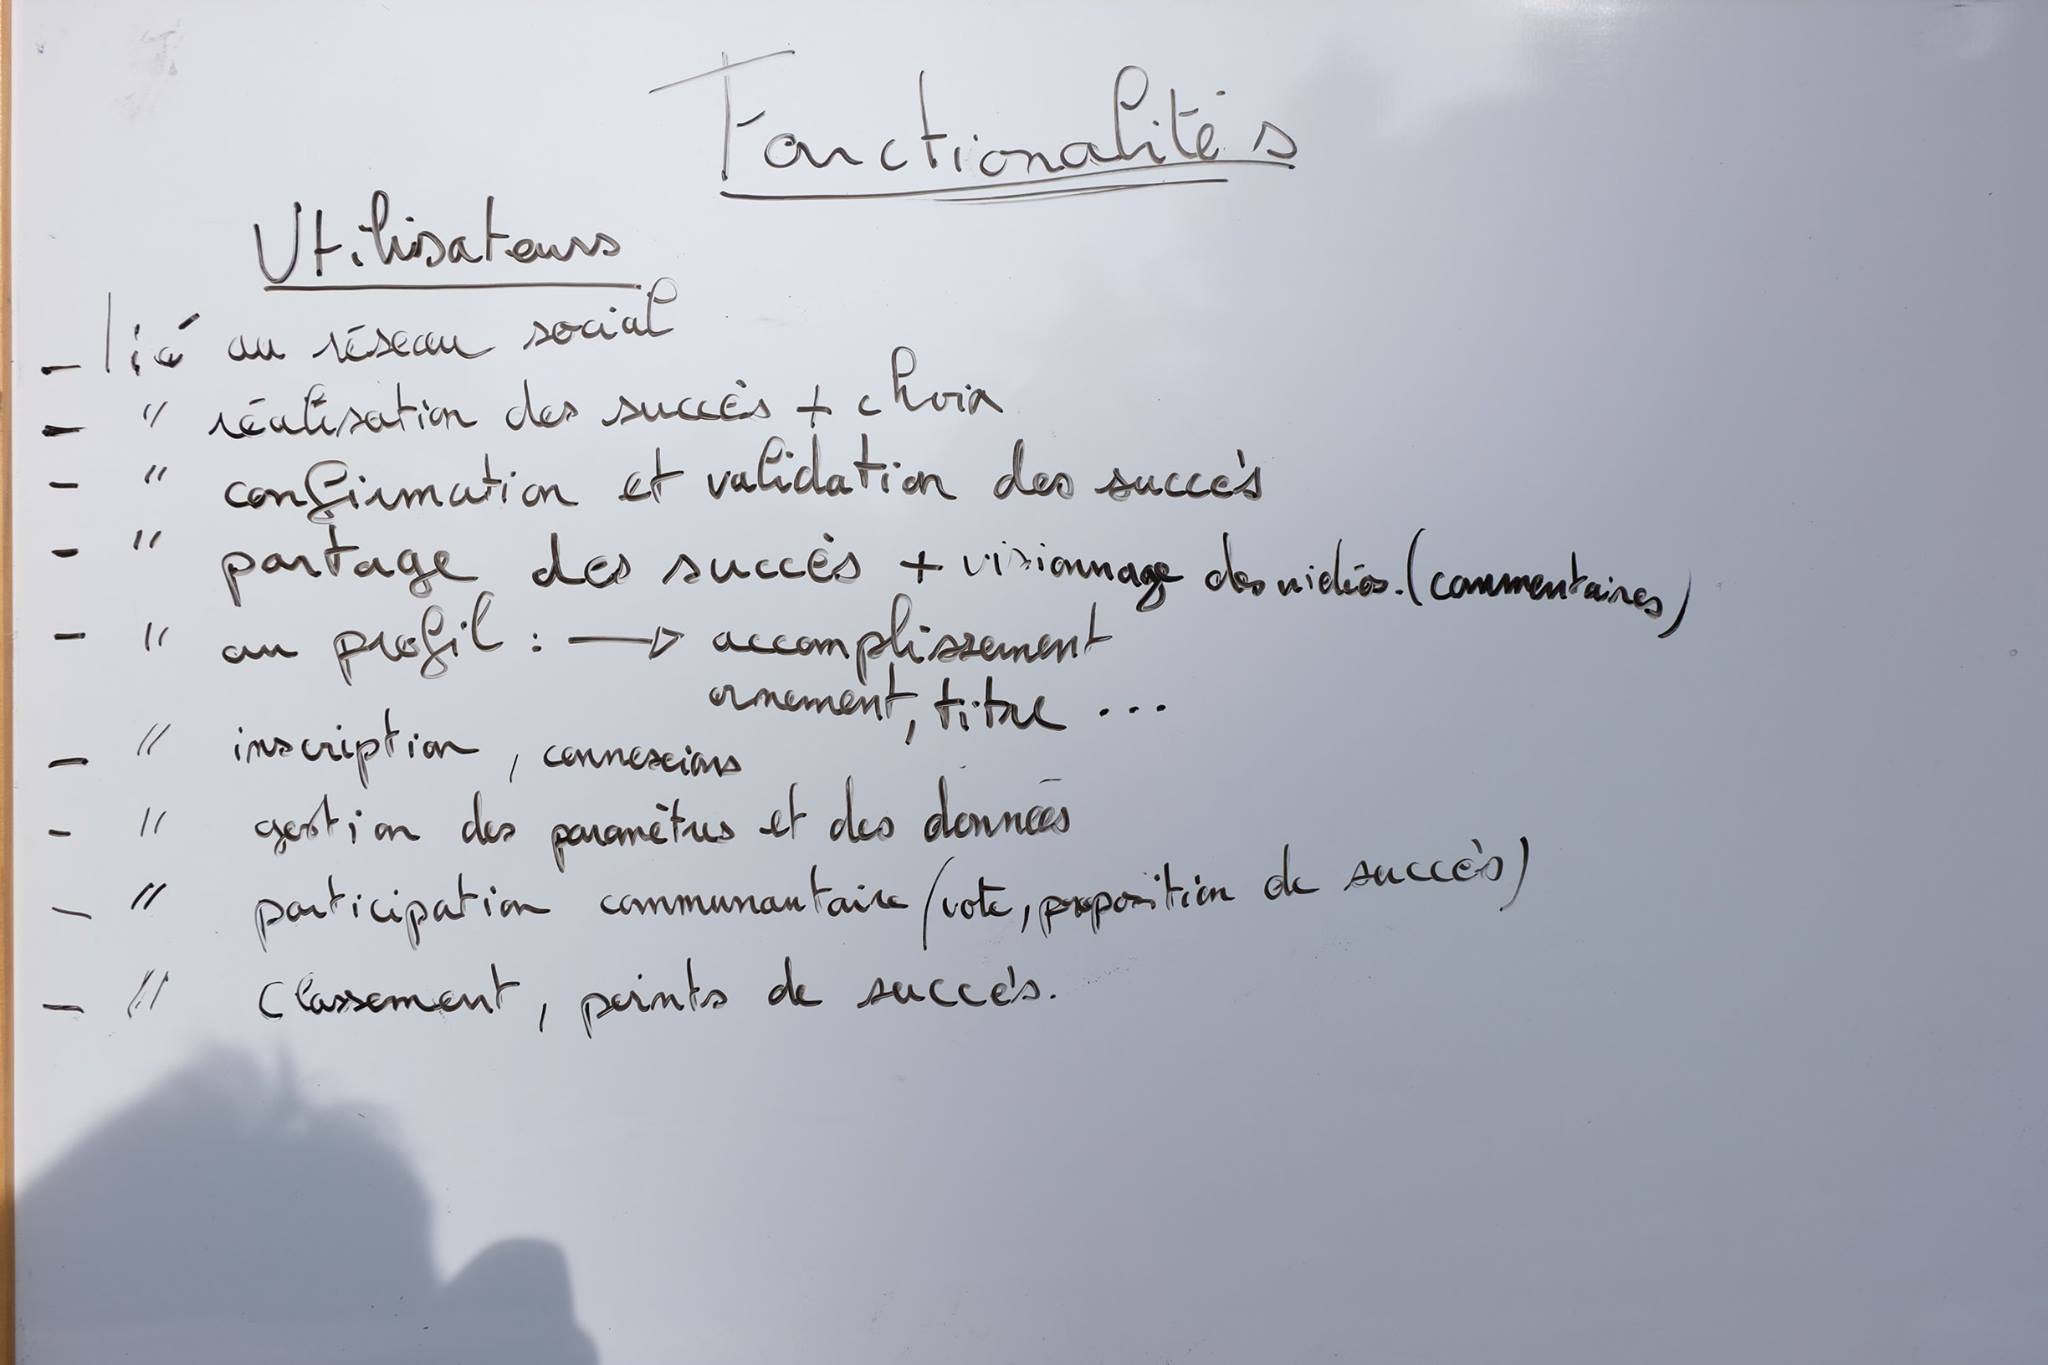 Fonctionalités
Utilisateurs
- lié au réseau social
- " réalisation des succès + choix
- " confirmation et validation des succès
- " partage des succès + visionnage des vidéos. (commentaires)
- " au profil : → accomplissement
ornement, titre ...
- " inscription, connexions
- " gestion des paramètres et des données
- " participation communautaire (vote, proposition de succès)
- " Classement, points de succès.